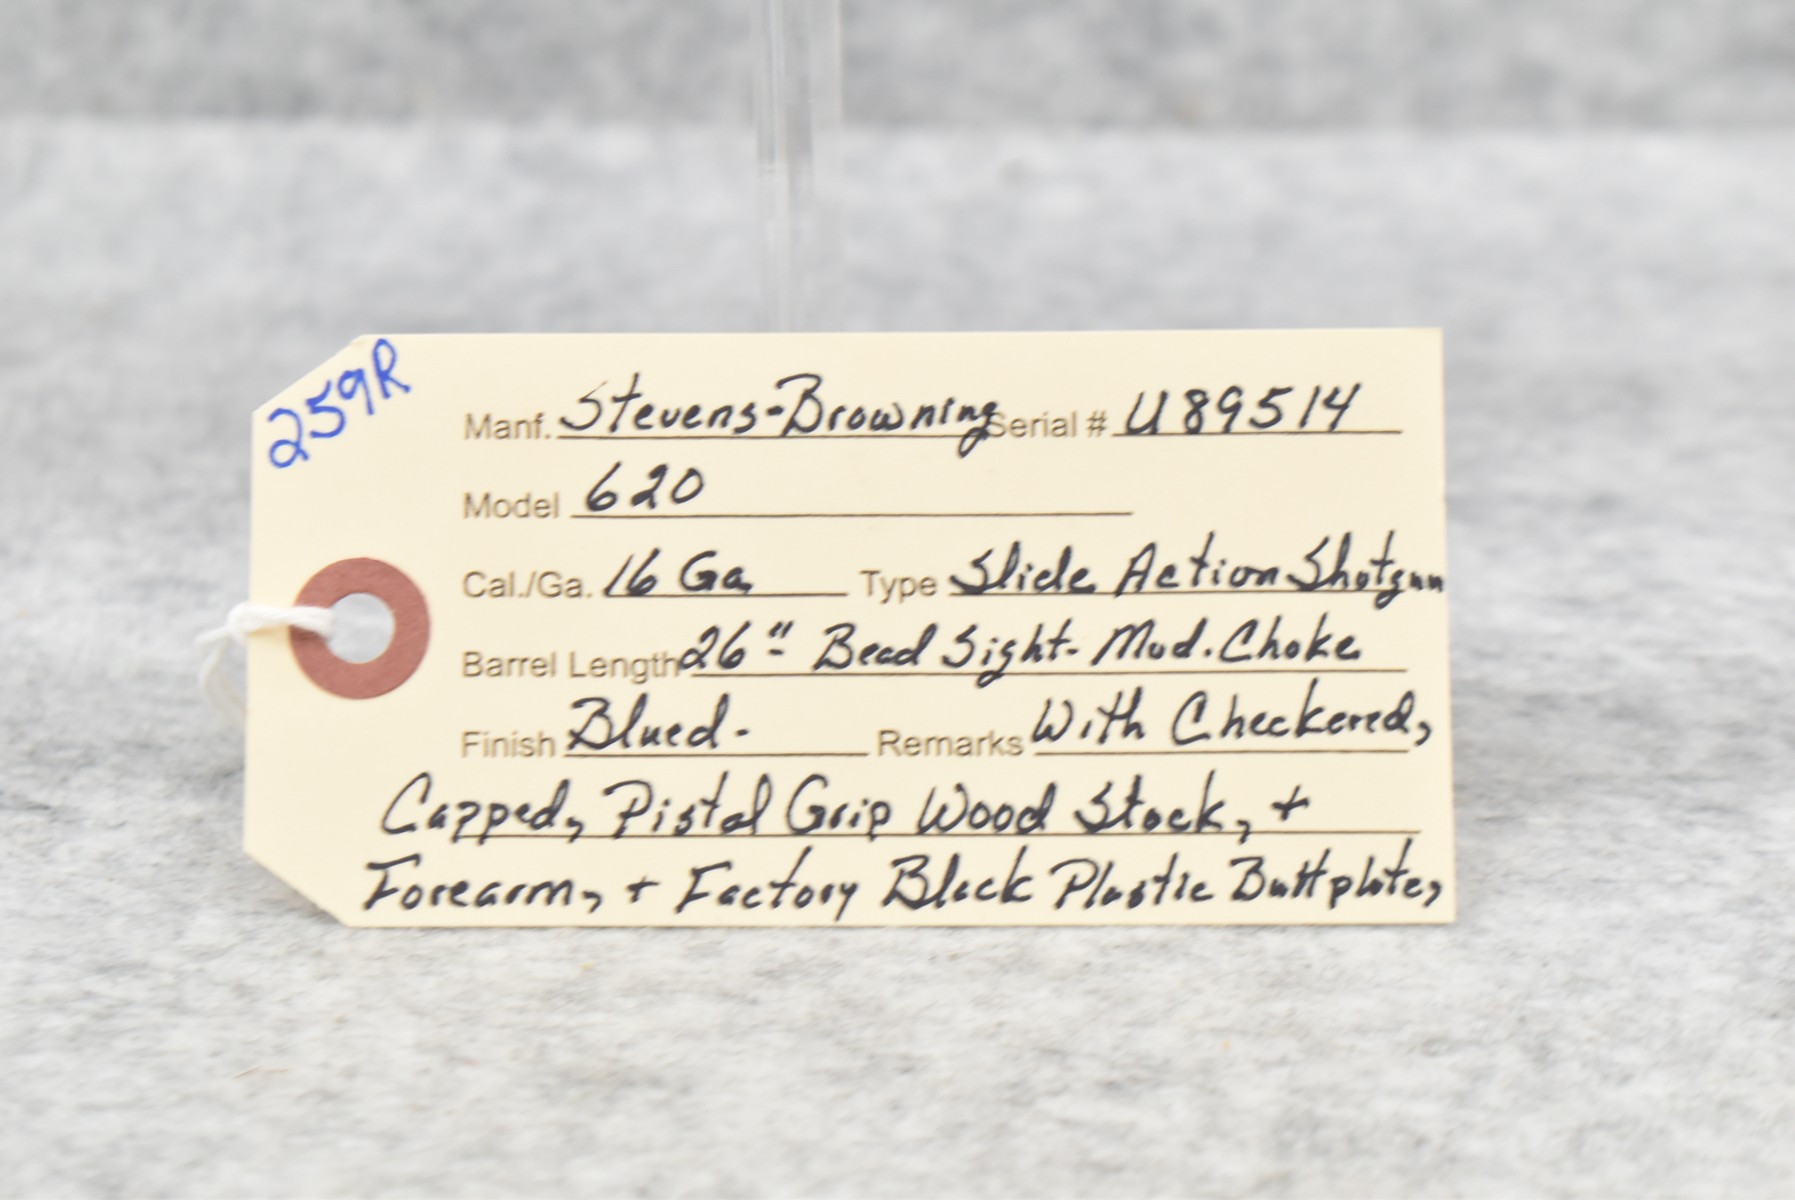 259R
Manf. Stevens-Browning Serial # U89514
Model 620
Cal./Ga. 16 Ga. Type Slide Action Shotgun
Barrel Length 26"- Bead Sight- Mod. Choke
Finish Blued- Remarks With Checkered,
Capped, Pistol Grip Wood Stock, +
Forearm, + Factory Black Plastic Buttplate,